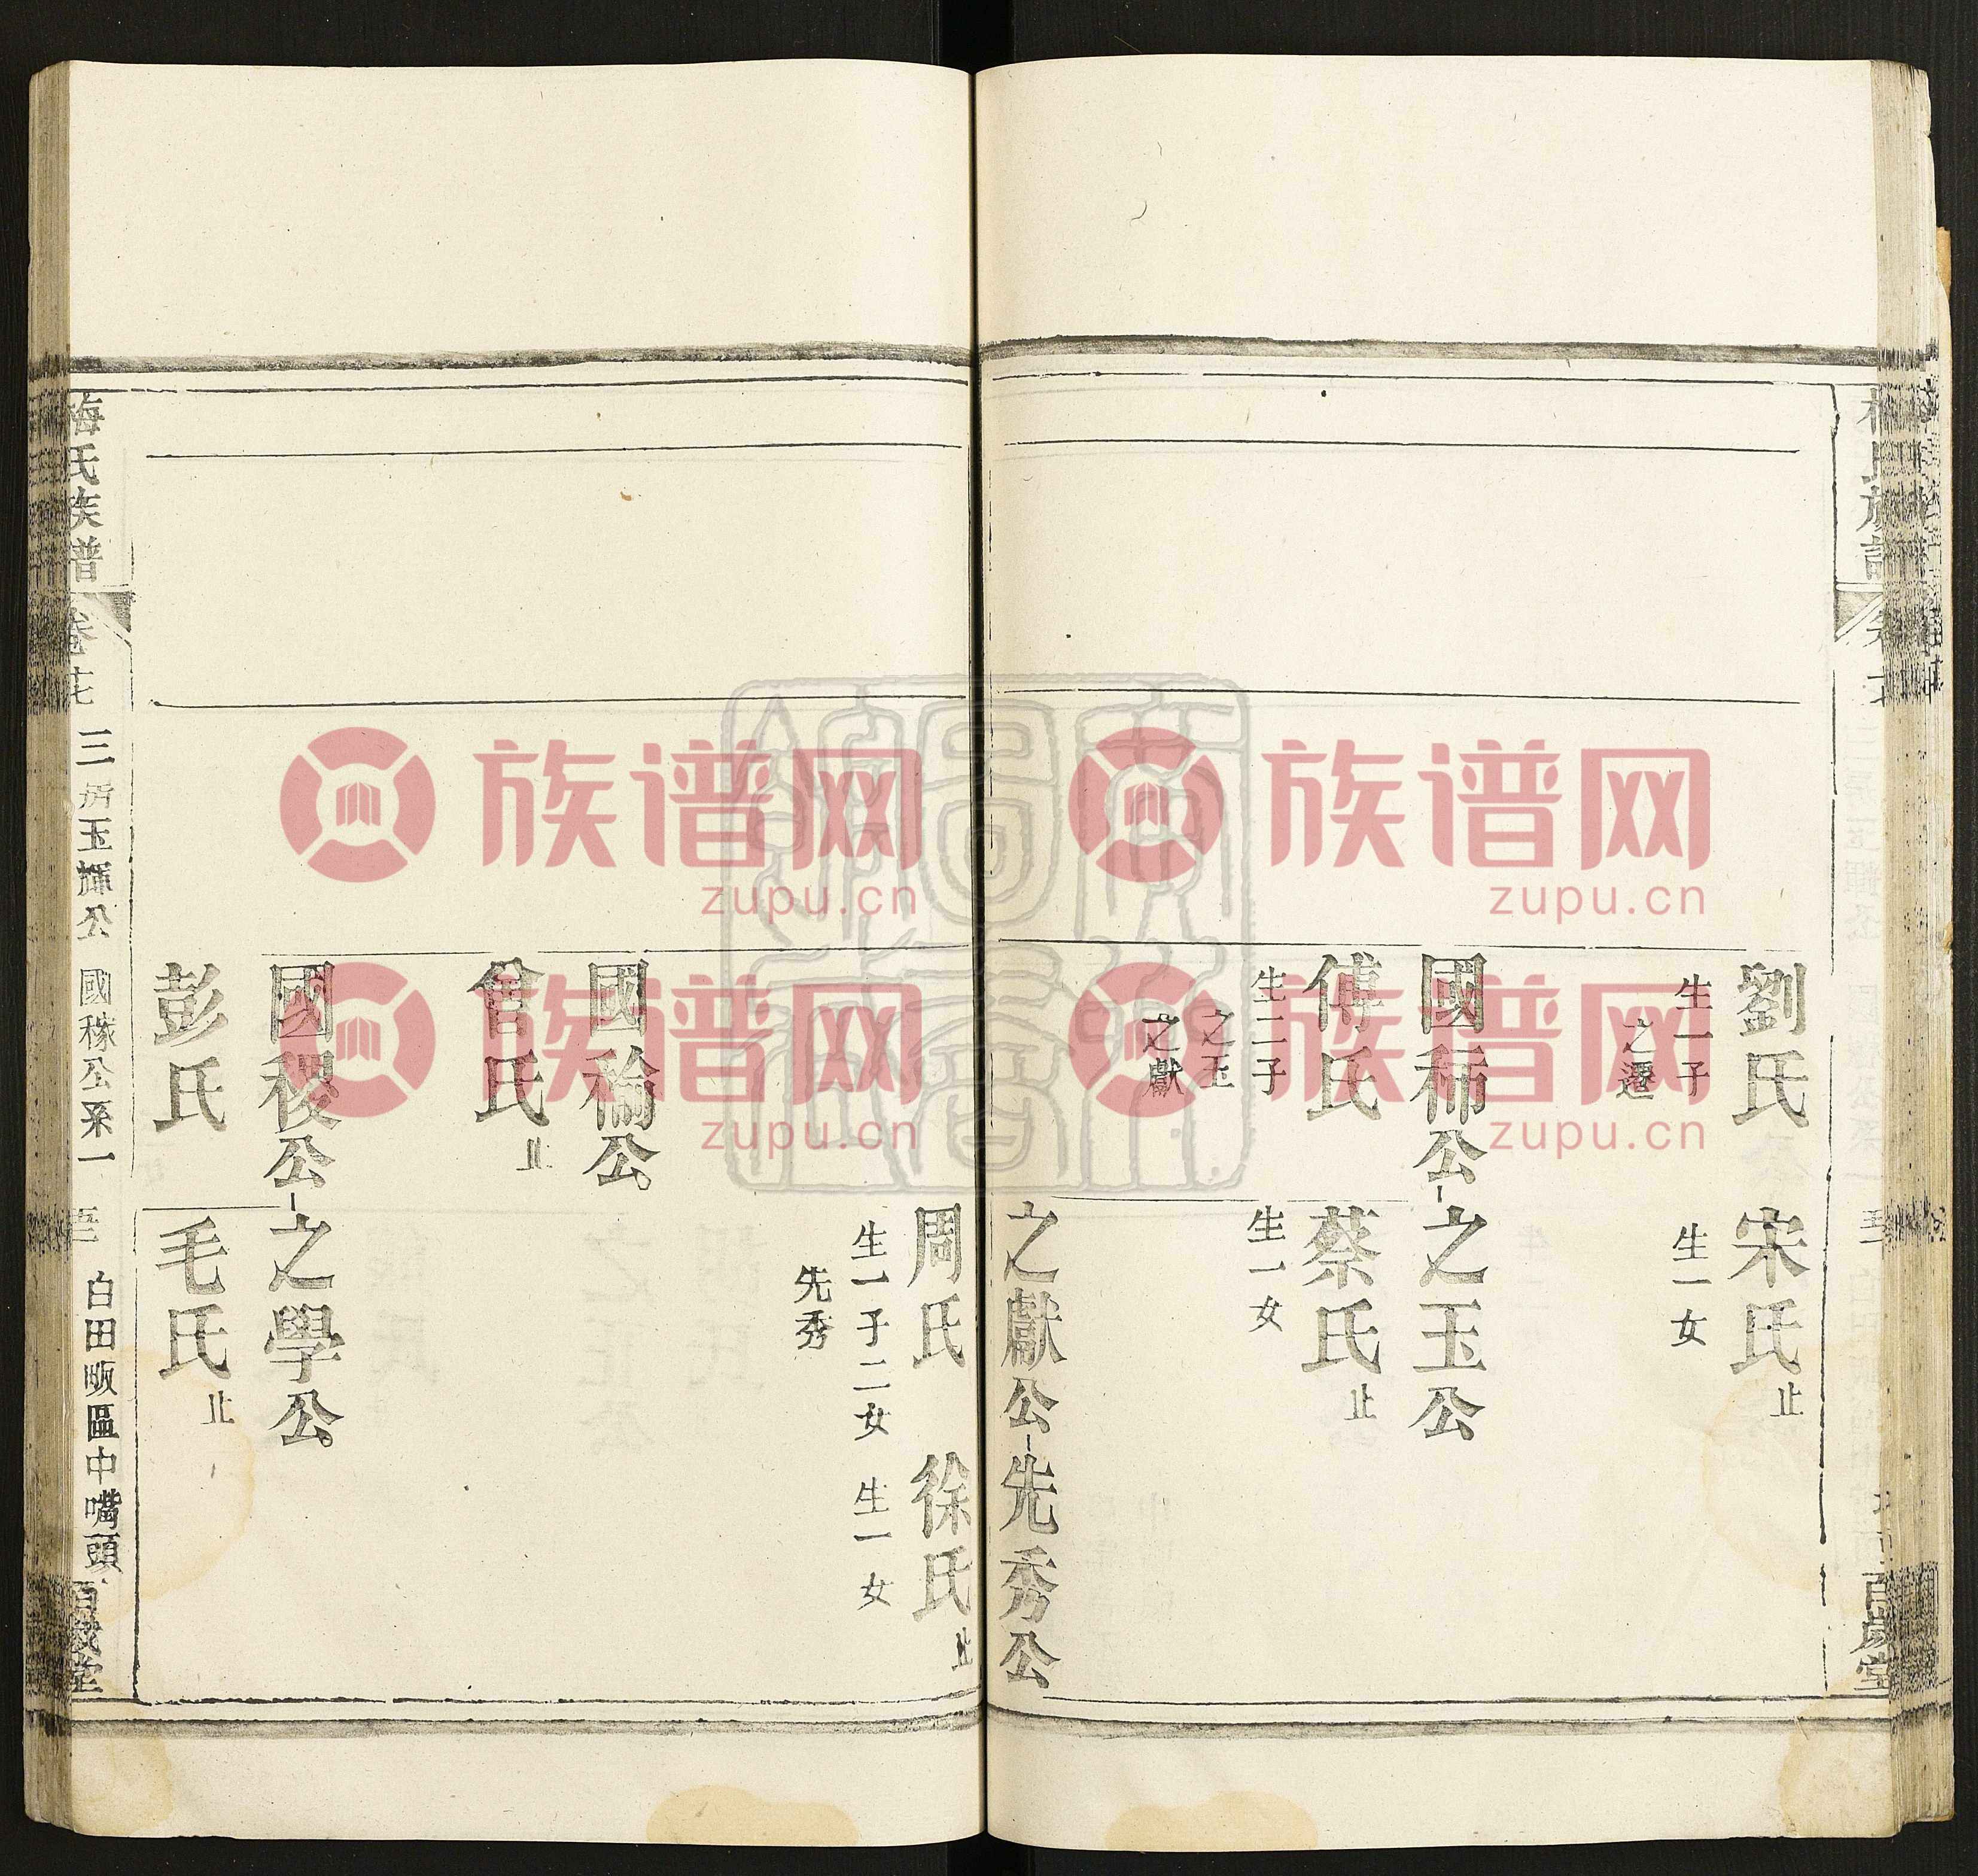 劉氏
生一子
之遷
宋氏
止
生一女
國秭公
之玉公
傅氏
生二子
之玉
之獻
蔡氏
止
生一女
之獻公
先秀公
周氏
生一子二女
先秀
徐氏
止
生一女
國稐公
曾氏
止
國稷公
之學公
彭氏
毛氏
止
梅氏族譜
三房玉輝公
國稼公系一
白田畈區中嘴頭
百歲堂
百歲堂
族谱网
zupu.cn
族谱网
zupu.cn
族谱网
zupu.cn
族谱网
zupu.cn